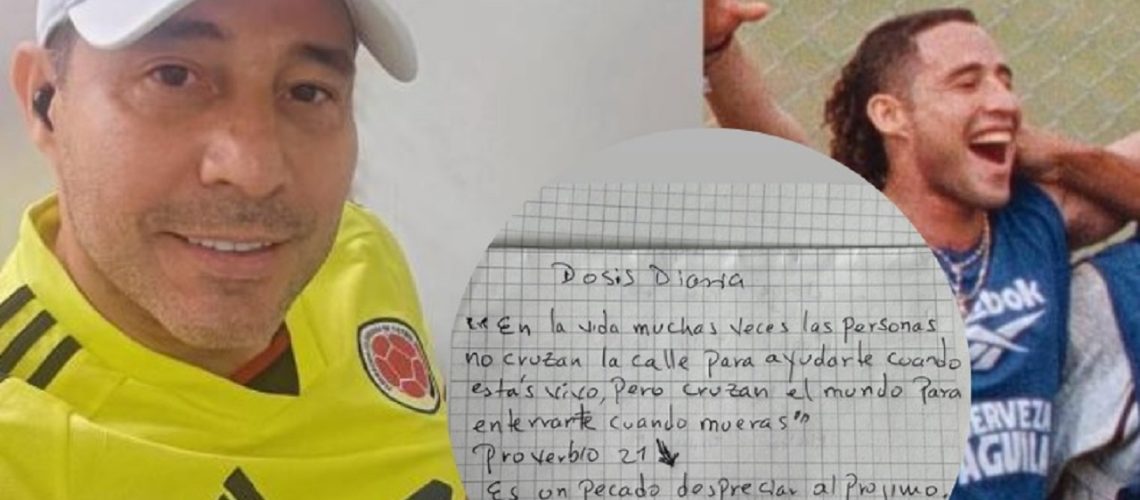 Dosis Diaria
"En la vida muchas veces las personas
no cruzan la calle para ayudarte cuando
estás vivo, pero cruzan el mundo para
enterrarte cuando mueras"
Proverbio 21
Es un pecado despreciar al Projimo.
ebok
ERVEZA
AGUILA